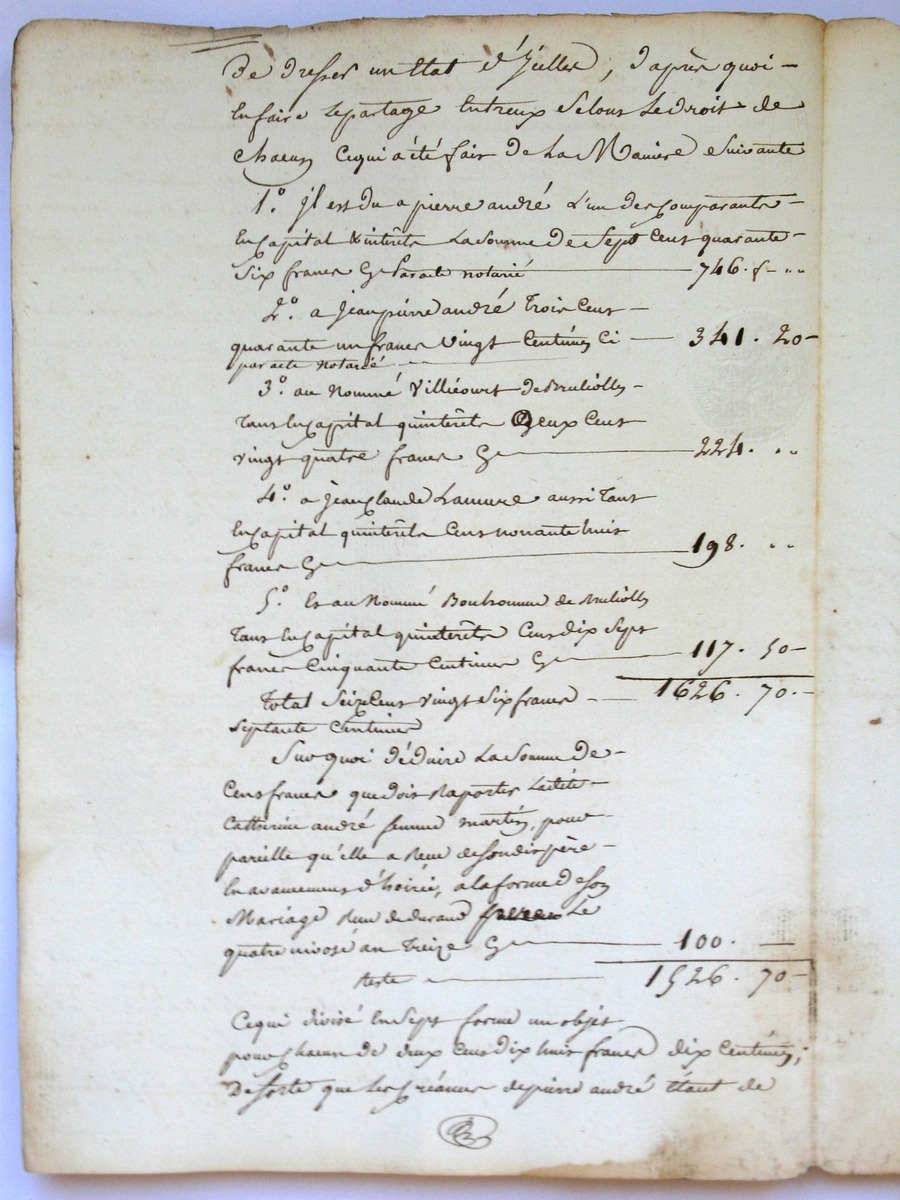 De dresser un Etat d'Jcelles, d'après quoi —
En faire Le partage Entreux Selons Le droit de
Chacun Cequi a été fait de La Maniere Suivante
1.° Jl est du a pierre andré L'un des Comparants —
En Capital & intérêts La Somme De Sept Cens quarante —
Six francs Cy par acte notarié — 746. f — ..
2.° a Jean pierre andré Trois Cens —
quarante un francs Vingt Centimes Ci — 341. 20 —
par acte notarié —
3.° au Nommé Villecourt de Bruliolles —
Tant En Capital qu'interêts Deux Cens
Vingt quatre francs Cy — 224. ..
4.° a Jean Claude Lamure aussi Tant
En Capital qu'interêts Cens nonante huit
francs Cy — 198. ..
5.° Et au Nommé de Bruliolles
Tant En Capital qu'interêts Cens dix Sept
francs Cinquante Centimes Cy — 117. 50 —
Total Seize Cens Vingt Six francs — 1626. 70. —
Septante Centimes
Sur quoi Déduire La Somme De —
Cens francs que doit Raporter Ladite —
Catherine andré femme martin, pour —
pareille qu'elle a Reçue desondit père —
En avancement d'hoirie, a la forme De son
Mariage Reçu Le
quatre nivose an Treize Cy — 100. —
Reste — 1526. 70 —
Cequi divisé En Sept forme un objet
pour Chacun de deux Cens Dix huit francs dix Centimes;
De sorte que Les Créances de pierre andré Etant de